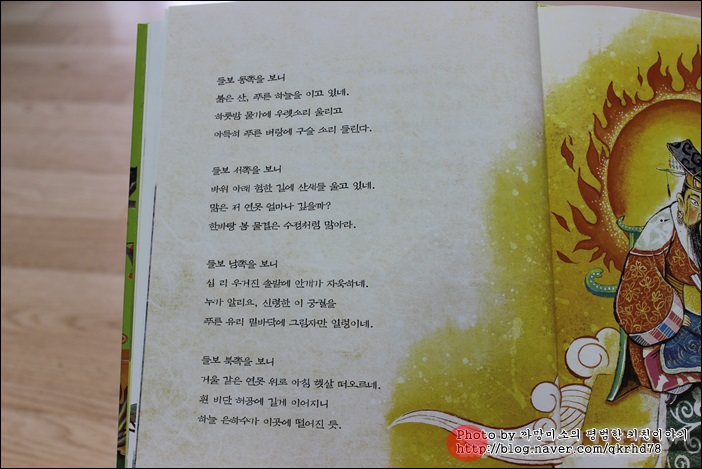 들보 동쪽을 보니
붉은 산, 푸른 하늘을 이고 있네.
하룻밤 물가에 우렛소리 울리고
아득히 푸른 벼랑에 구슬 소리 들린다.
들보 서쪽을 보니
바위 아래 험한 길에 산새들 울고 있네.
맑은 저 연못 얼마나 깊을까?
한바탕 봄 물결은 수정처럼 맑아라.
들보 남쪽을 보니
십 리 우거진 솔밭에 안개가 자욱하네.
누가 알리요, 신령한 이 궁궐을
푸른 유리 밑바닥에 그림자만 일렁이네.
들보 북쪽을 보니
거울 같은 연못 위로 아침 햇살 떠오르네.
흰 비단 허공에 길게 이어지니
하늘 은하수가 이곳에 떨어진 듯.
Photo by 까망미소의 평범한 키친이야기
http://blog.naver.com/qkrhd78